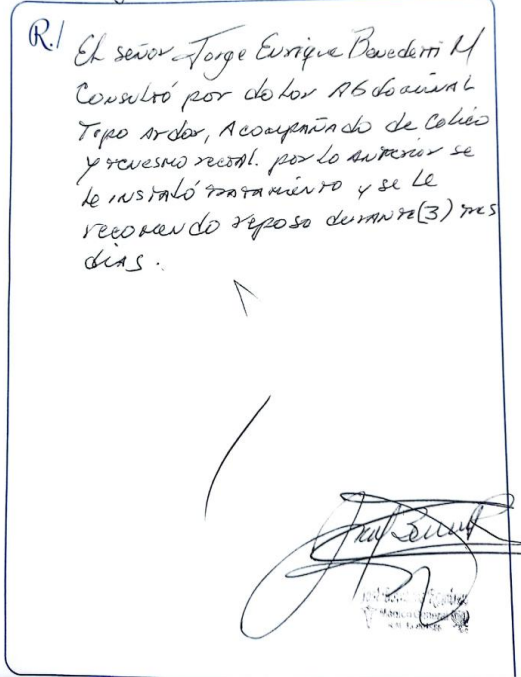 R./
El señor Jorge Enrique Benedetti M
Consultó por dolor Abdominal
Tipo Ardor, Acompañado de Cólico
y tenesmo rectal. por lo anterior se
le instaló tratamiento y se le
recomendo reposo durante (3) tres
días.
Médico